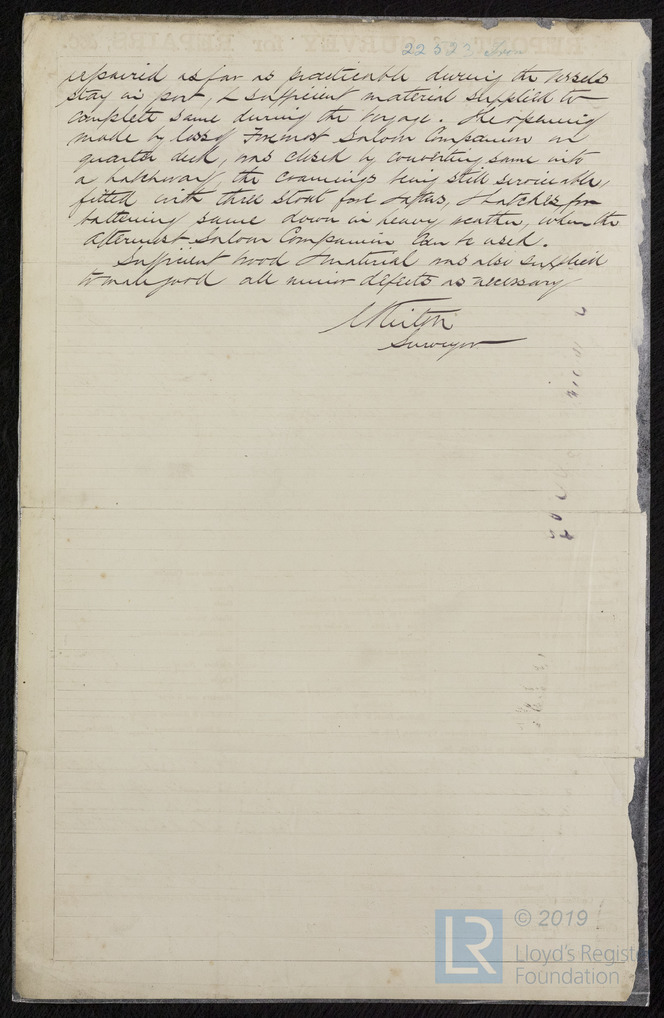 22523 Iron
repaired as far as practicable during the Vessels
stay in port, & sufficient material supplied to
complete same during the voyage. The opening
made by loss of Foremost Saloon Companion on
quarter deck, was closed by converting same into
a hatchway, the coamings being still serviceable,
fitted with three stout fore & afters, & hatches for
battening same down in heavy weather, when the
Aftermost Saloon Companion can be used.
Sufficient wood & material was also supplied
to make good all minor defects as necessary
Surveyor
LR
© 2019
Lloyd's Registe
Foundation